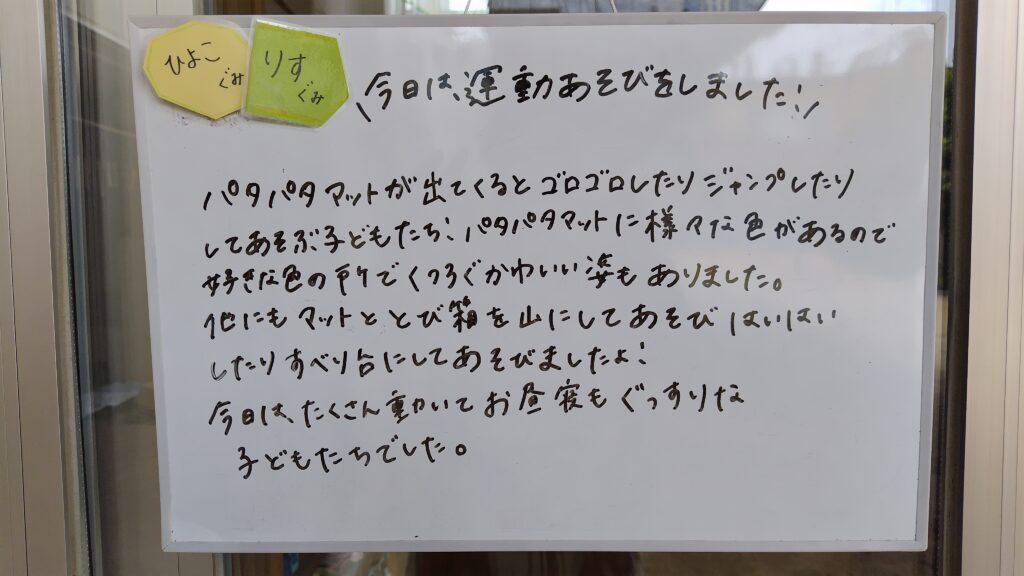 ひよこぐみ
りすぐみ
\今日は、運動あそびをしました!/
パタパタマットが出てくるとゴロゴロしたりジャンプしたり
してあそぶ子どもたち!パタパタマットに様々な色があるので
好きな色の所でくつろぐかわいい姿もありました。
他にもマットととび箱を山にしてあそびはいはい
したりすべり台にしてあそびましたよ!
今日は、たくさん動いてお昼寝もぐっすりな
子どもたちでした。